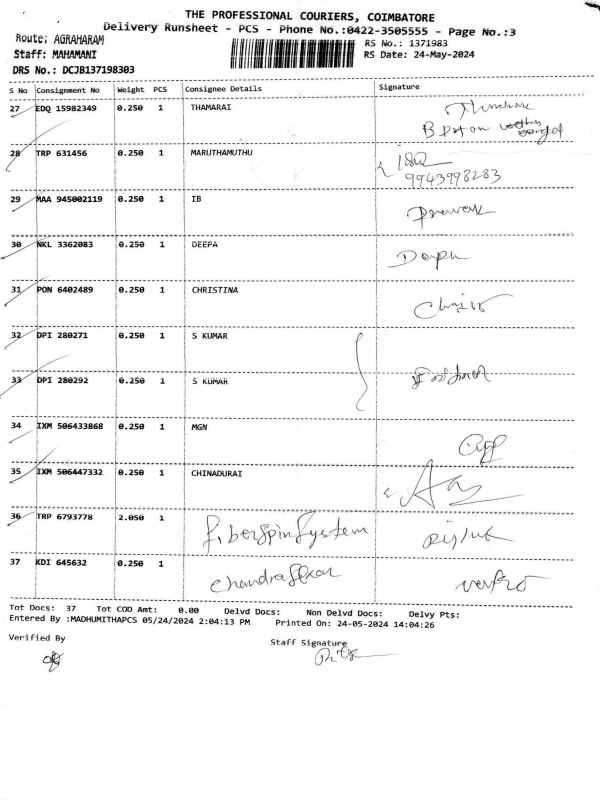 THE PROFESSIONAL COURIERS, COIMBATORE
Delivery Runsheet - PCS - Phone No.:0422-3505555 - Page No.:3
Route: AGRAHARAM
RS No.: 1371983
Staff: MAHAMANI
RS Date: 24-May-2024
DRS No.: DCJB137198303
S No Consignment No Weight PCS Consignee Details Signature
27 EDQ 15982349 0.250 1 THAMARAI
28 TRP 631456 0.250 1 MARUTHAMUTHU
9943998283
29 MAA 945002119 0.250 1 IB
30 NKL 3362083 0.250 1 DEEPA
31 PON 6402489 0.250 1 CHRISTINA
32 DPI 280271 0.250 1 S KUMAR
33 DPI 280292 0.250 1 S KUMAR
34 IXM 506433868 0.250 1 MGN
35 IXM 506447332 0.250 1 CHINADURAI
36 TRP 6793778 2.050 1 FiberSpinSystem
37 KDI 645632 0.250 1
Tot Docs: 37 Tot COD Amt: 0.00 Delvd Docs: Non Delvd Docs: Delvy Pts:
Entered By :MADHUMITHAPCS 05/24/2024 2:04:13 PM Printed On: 24-05-2024 14:04:26
Verified By Staff Signature